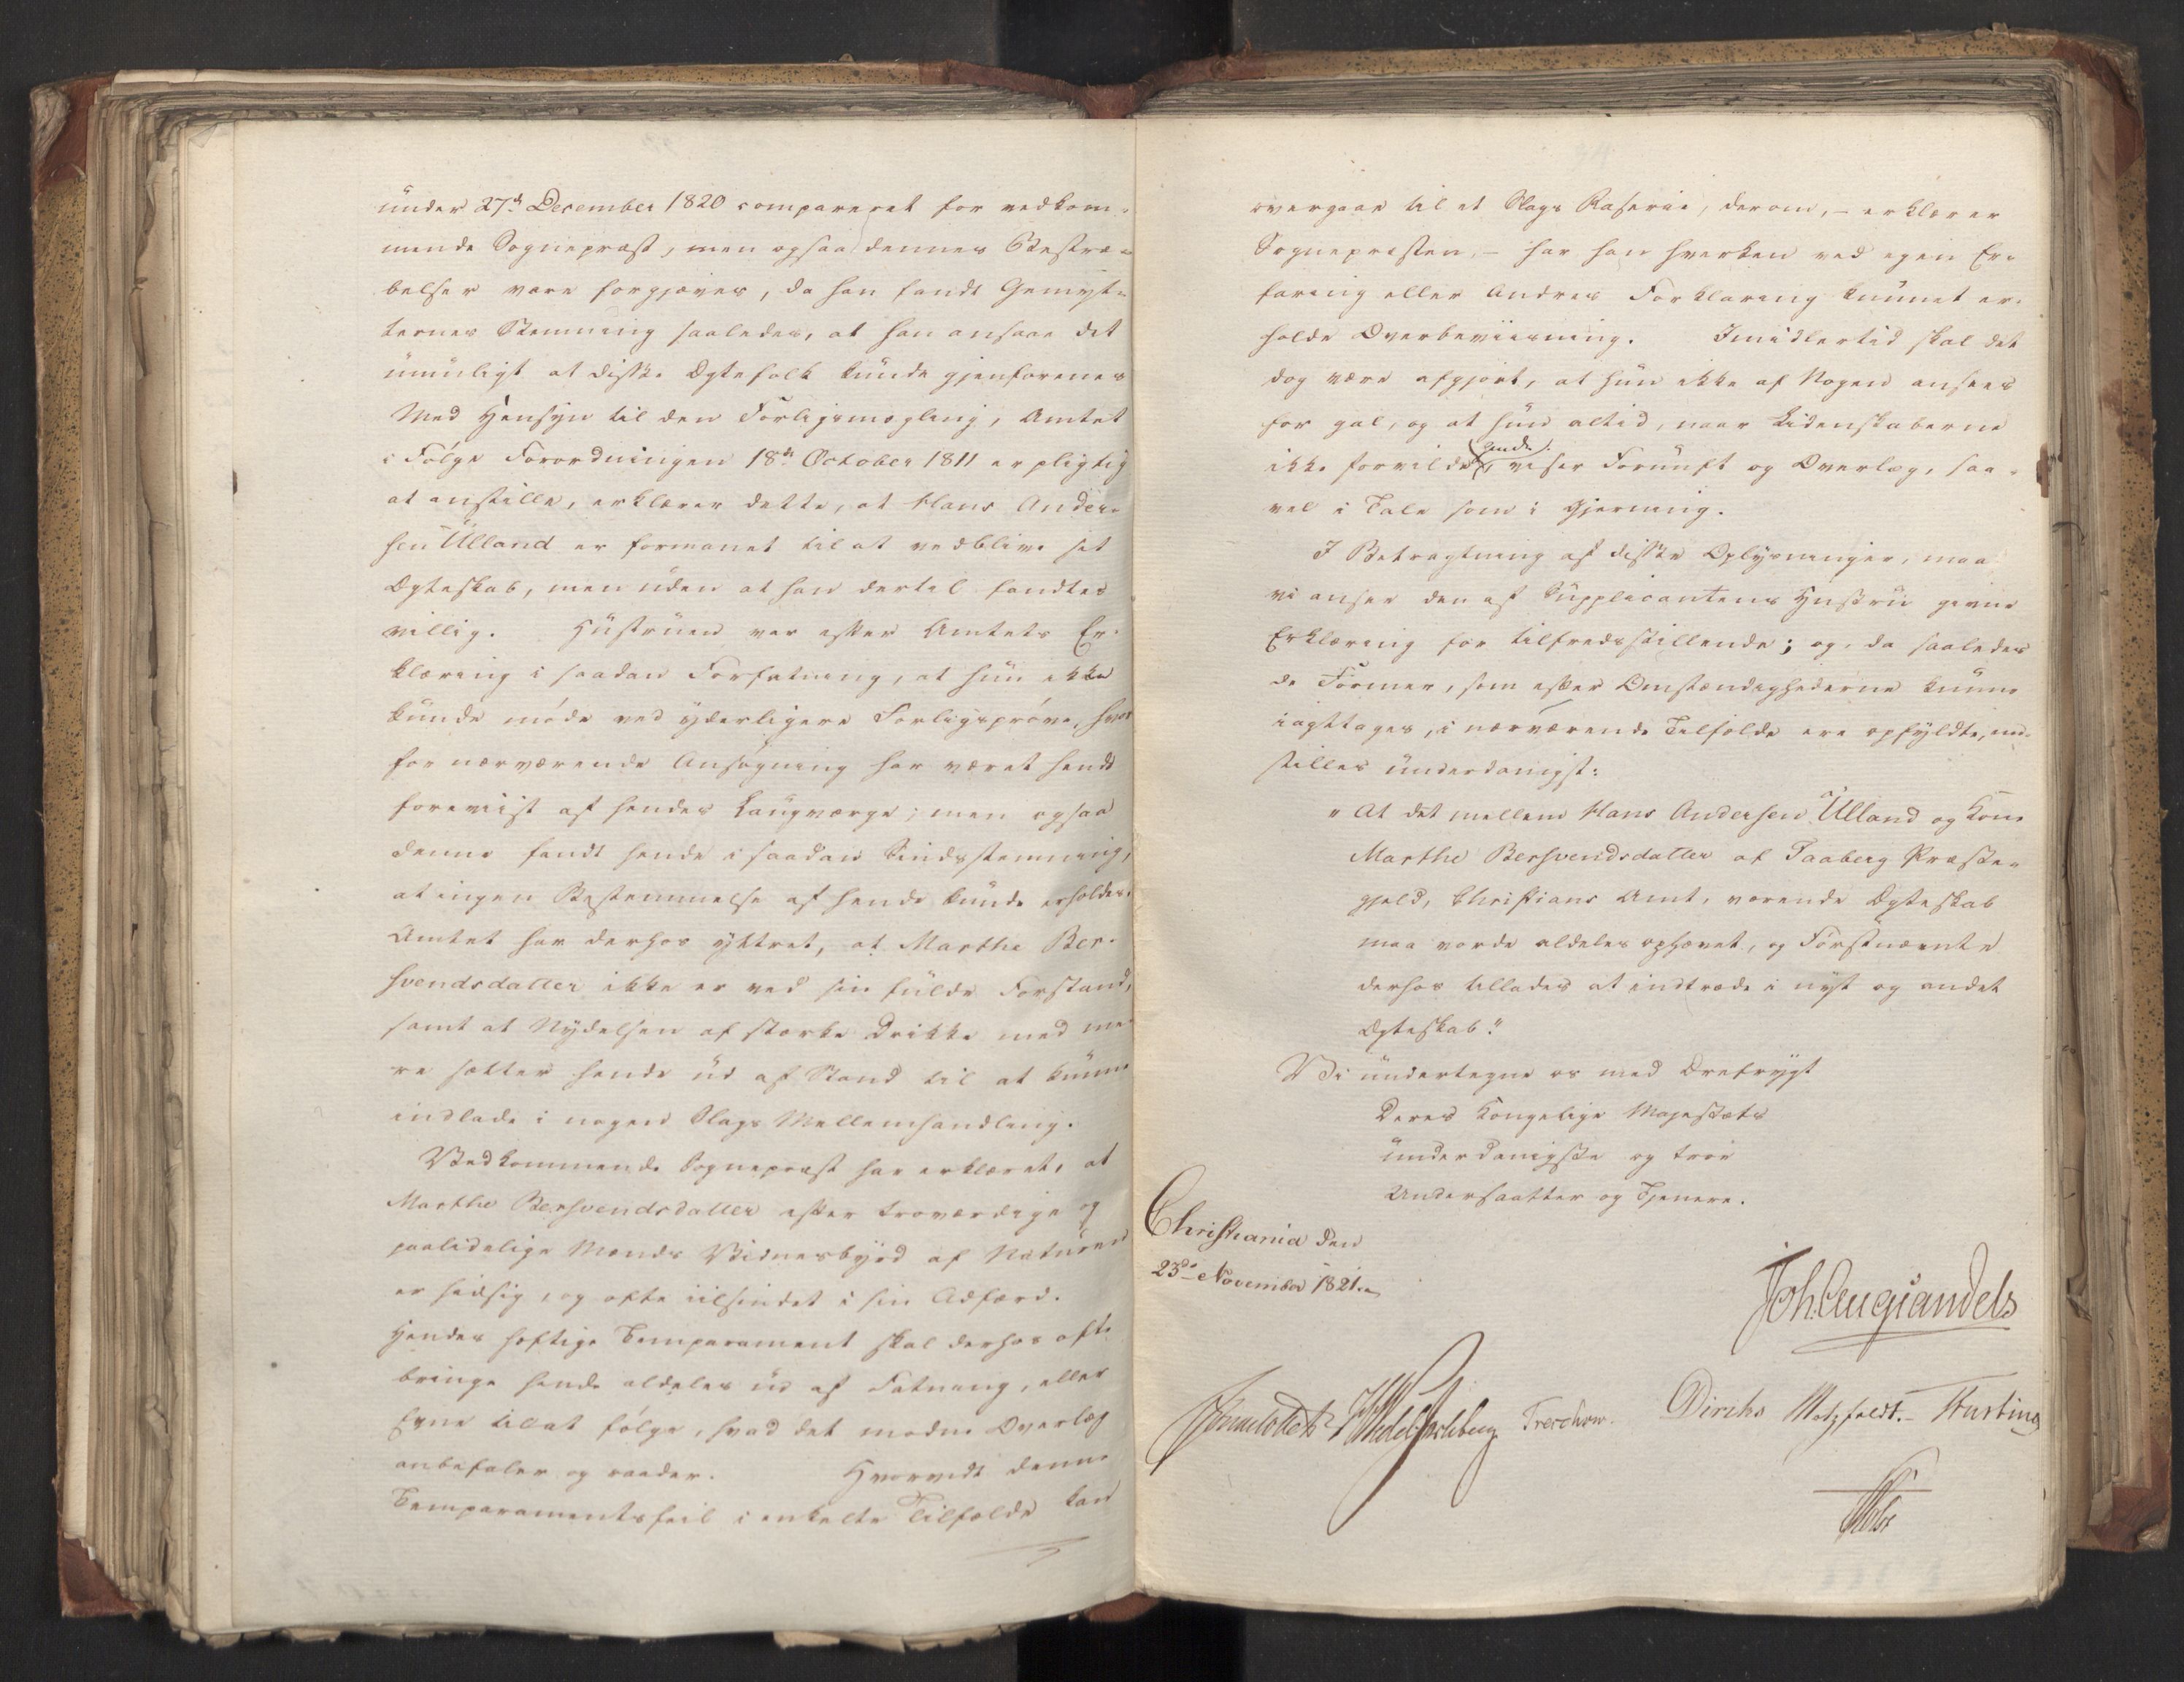 under 27de December 1820 compareret for vedkom-
mende Sognepræst, men ogsaa dennes Bestræ-
belser vare forgjæves, da han fandt Gemyt-
ternes Stemning saaledes, at han ansaae det
umuligt at disse Ægtefolk kunde gjenforenes
Med Hensyn til den Forligsmægling, Amtet
i Følge Forordningen 18de October 1811 er pligtig
at anstille, erklærer dette, at Hans Ander-
sen Ulland er formanet til at vedblive sit
Ægteskab, men uden at han dertil fandtes
villig. Hustruen var efter Amtets Er-
klæring i saadan Forfatning, at hun ikke
kunde møde ved yderligere Forligsprøve, hvor
for nærværende Ansøgning har været hende
foreviist af hendes Laugværge; men ogsaa
denne fandt hende i saadan Sindsstemning,
at ingen Bestemmelse af hende kunde erholdes.
Amtet har derhos yttret, at Marthe Ber-
svendsdatter ikke er ved sin fulde Forstand,
samt at Nydelsen af stærke Drikke med me-
re sætter hende ud af Stand til at kunne
indlade i nogen Slags Mellemhandling.
Vedkommende Sognepræst har erklæret, at
Marthe Bersvendsdatter efter troværdige og
paalidelige Mænds Vidnesbyrd af Naturen
er hidsig, og ofte iilsindet i sin Adfærd.
Hendes hæftige Temperament skal derhos ofte
bringe hende aldeles ud af Fatning, eller
Evne til at følge, hvad det modne Overlæg
anbefaler og raader. Hvorvidt denne
Temperamentsfeil i enkelte Tilfælde kan
overgaae til et Slags Raserie, derom, - erklærer
Sognepræsten, - har han hverken ved egen Er-
faring eller Andres Forklaring kunnet er-
holde Overbeviisning. Imidlertid skal det
dog være afgjort, at hun ikke af Nogen ansees
for gal, og at hun altid, naar Lidenskaberne
ikke forvilde hende, viser Fornuft og Overlæg, saa-
vel i Tale som i Gjerning.
I Betragtning af disse Oplysninger, maa
vi ansee den af Supplicantens Hustru givne
Erklæring for tilfredsstillende; og, da saaledes
de Former, som efter Omstændighederne kunne
iagttages, i nærværende Tilfælde ere opfyldte, ind-
stilles underdanigst:
"At det mellem Hans Andersen Ulland og Kone
Marthe Bersvendsdatter af Faaberg Præste-
gjeld, Christians Amt, værende Ægteskab
maa vorde aldeles ophævet, og Førstnævnte
derhos tillades at indtræde i nyt og andet
Ægteskab."
Vi undertegne os med Ærefrygt
Deres Kongelige Majestæts
underdanigste og troe
Undersaatter og Tjenere.
Christiania den
23de November 1821.
Joh. Aug. Sandels
Sommerhielm HWedel Jarlsberg Treschow. Diriks Motzfeldt. Fasting
Holst